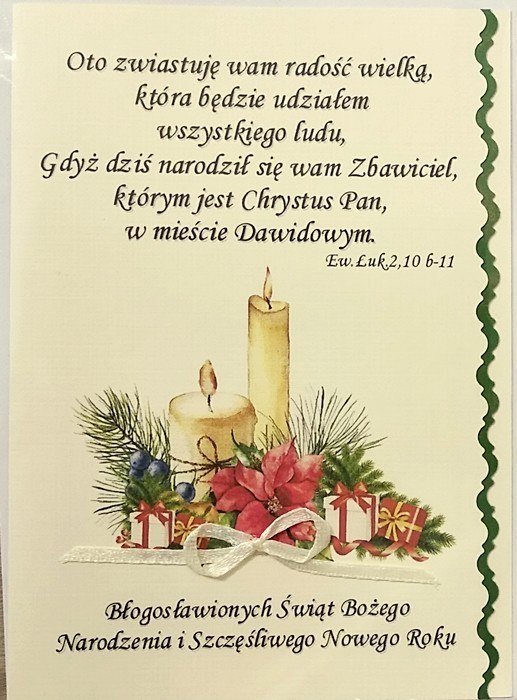 Oto zwiastuję wam radość wielką,
która będzie udziałem
wszystkiego ludu,
Gdyż dziś narodził się wam Zbawiciel,
którym jest Chrystus Pan,
w mieście Dawidowym.
Ew.Łuk.2,10 b-11
Błogosławionych Świąt Bożego
Narodzenia i Szczęśliwego Nowego Roku